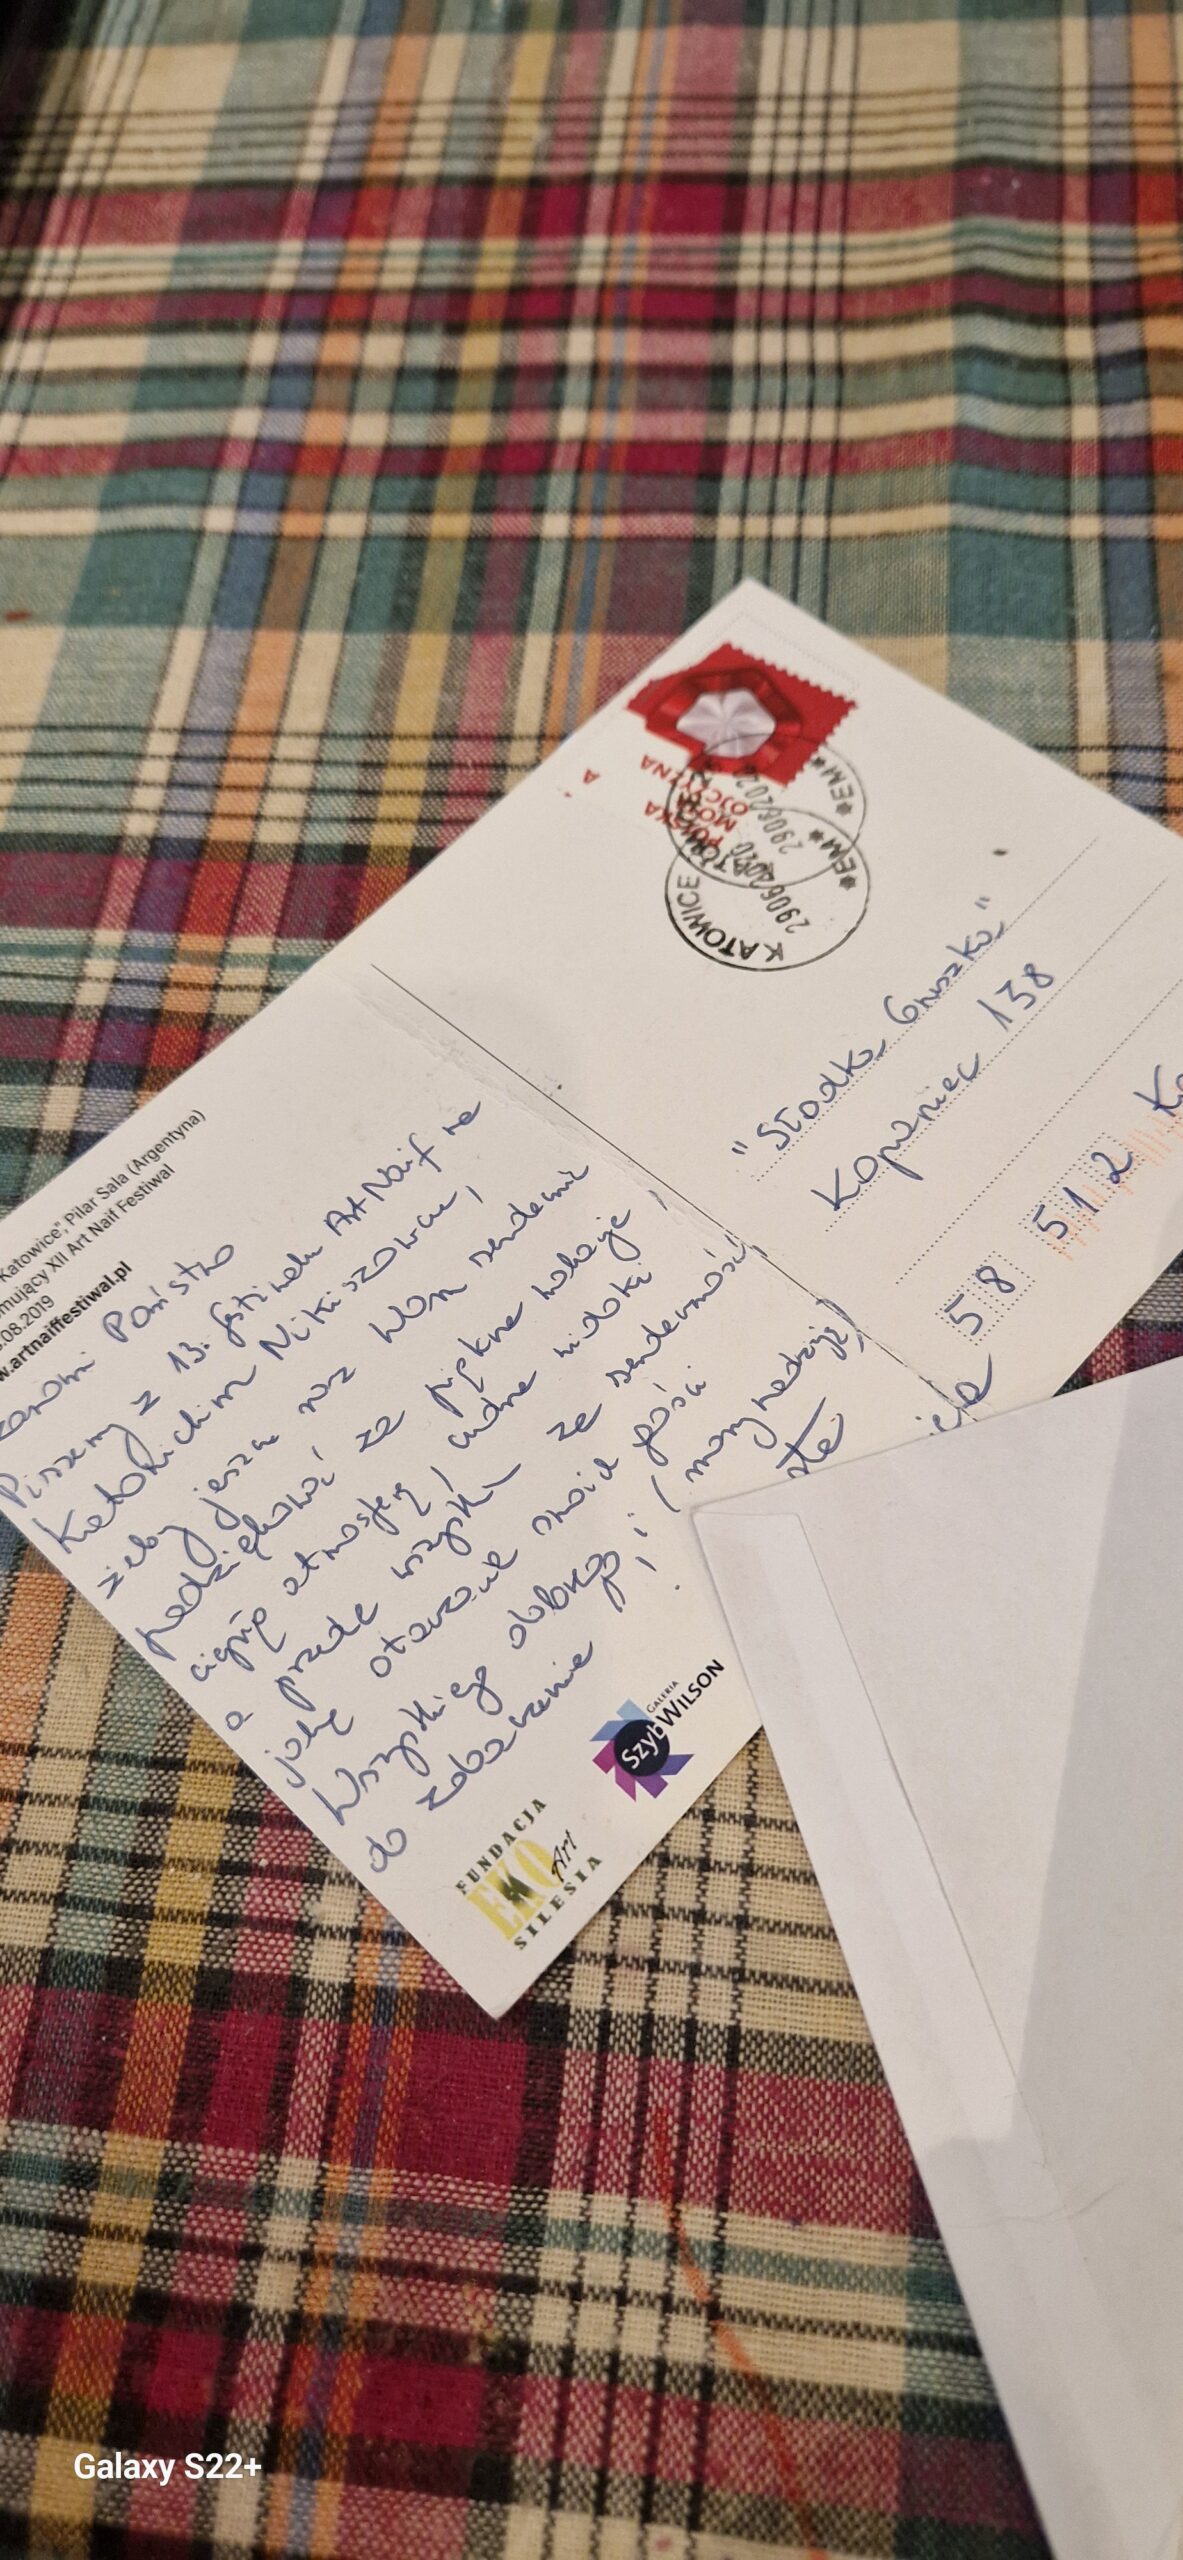 Katowice", Pilar Sala (Argentyna)
mujący XII Art Naif Festiwal
.08.2019
w.artnaiffestiwal.pl
Państwo
Piszemy z 13. festiwalu Art Naif na
Katowickim Nikiszowcu,
żeby jeszcze raz Wam serdecznie
podziękować za piękne wakacje,
ciepłą atmosferę, cudne widoki
a przede wszystkim za serdeczność,
jaką otaczacie swoich gości
Wszystkiego dobrego i (mamy nadzieję)
do zobaczenia!
FUNDACJA
EKO Art
SILESIA
GALERIA
SzybWILSON
POLSKA
MOJA OJCZYZNA
A
KATOWICE
29062020
*EM*
KATOWICE
29062020
*EM*
"Słodka Gruszka"
Kopaniec 138
58 512
Galaxy S22+